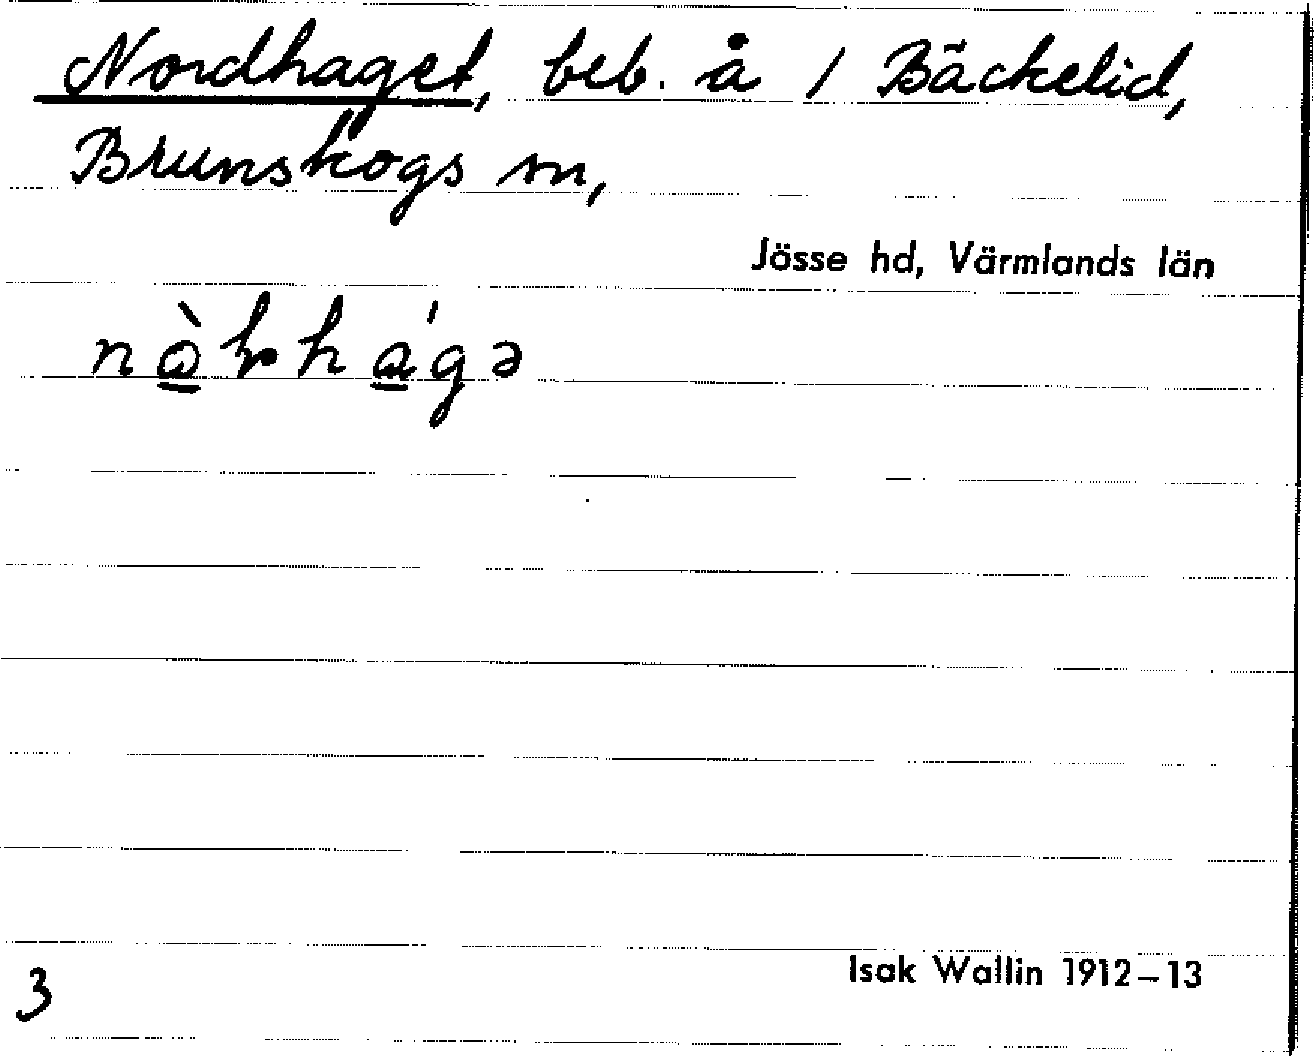 Nordhaget, beb. å 1 Bäckelid,
Brunskogs sn,
Jösse hd, Värmlands län
Isak Wallin 1912–13
3